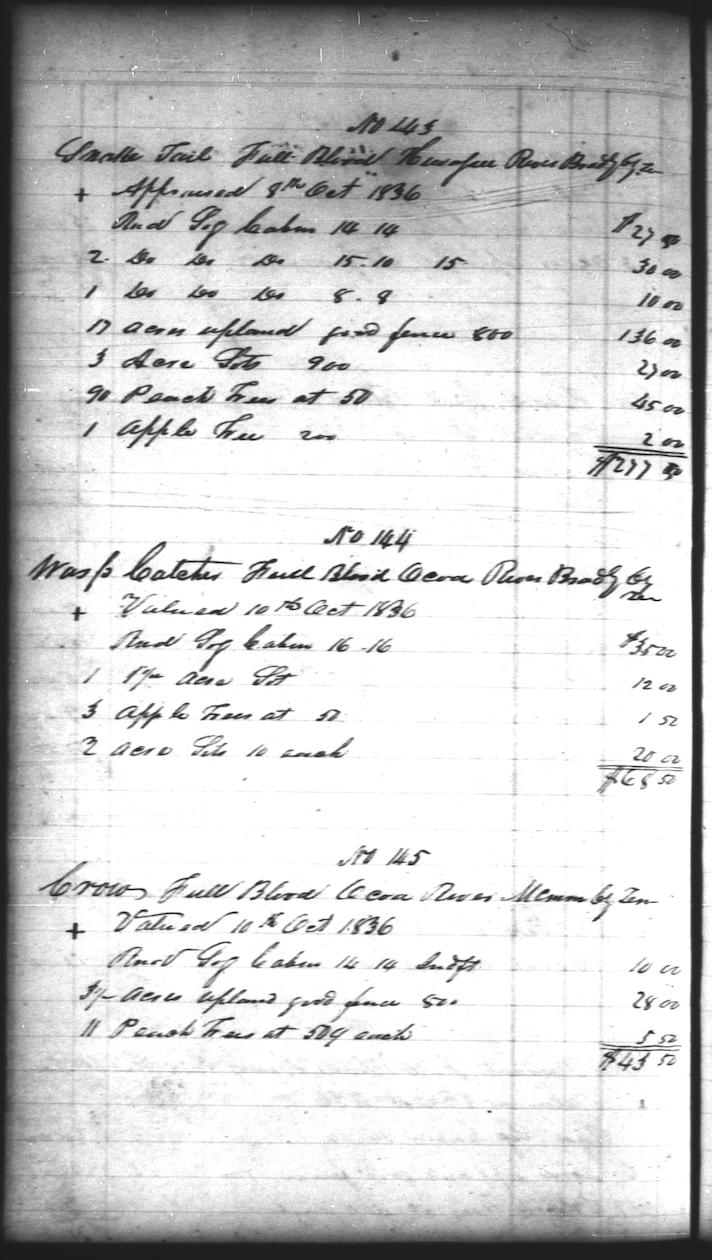 No 143
Snake Tail Full Blood Hiwassee River Bradly Cy Ten
+ Appraised 8th Oct 1836
Rnd Log Cabin 14 14 $27 00
2 Do Do Do 15.10 15 30 00
1 Do Do Do 8.8 10 00
17 acres upland good fence 800 136 00
3 Acre Lots 900 27 00
90 Peach Trees at 50 45 00
1 apple Tree 200 2 00
$277 00
No 144
Wasp Catcher Full Blood Ocoa River Bradly Cy
Ten
+ Valued 10th Oct 1836
Rnd Log Cabin 16-16 $35 00
1 acre Lot 12 00
3 Apple Trees at 50 1 50
2 acre Lots 10 each 20 00
$68 50
No 145
Crow Full Blood Ocoa River Mcminn Cy Ten
+ Valued 10th Oct 1836
Rnd Log Cabin 14 14 10 00
acres upland good fence 800 28 00
11 Peach Trees at 50¢ each 5 50
$43 50